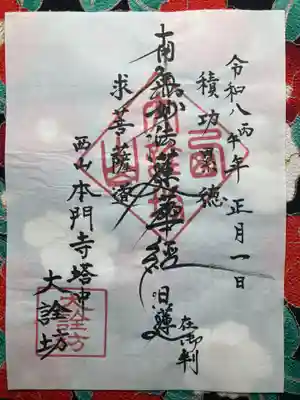 令和八丙午年正月一日
積功累德
南無妙法蓮華經 日蓮
在御判
求菩薩道
西山本門寺塔中
大詮坊
大詮坊